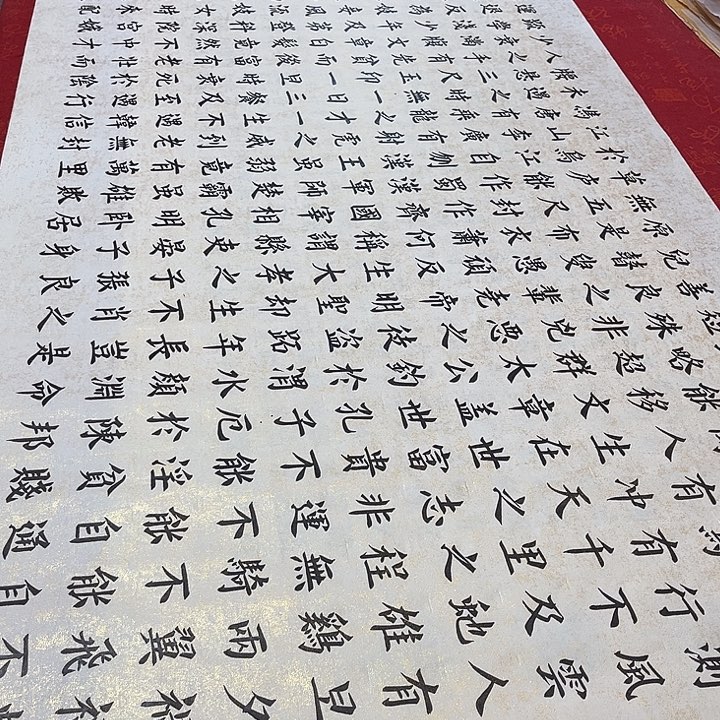 測風雲人有旦夕
行不及虵雄鷄兩翼飛不
有千里之程無騎不能自
有沖天之志非運不能自通
人生在世富貴不能淫貧賤
能移文章蓋世孔子厄於陳邦
略超群太公釣於渭水顏淵命
殊非兇惡之徒盜跖年長豈是
善良之輩堯帝明聖却生不肖之
兒瞽叟愚頑反生大孝子張良
原是布衣蕭何稱謂縣吏晏子身
無五尺封作齊國宰相孔明臥居
草廬能作蜀漢軍師楚霸雖雄敗
於烏江自刎漢王雖弱竟有萬里
江山李廣有射虎之威到老無封
馮唐有乘龍之才一生不遇韓信
未遇之時無一日三餐及至遇行
腰懸三尺玉印一旦時衰死於陰
人之手有先貧而後富有老壯而
少衰滿腹文章白髮竟然不中才
疏學淺少年及第登科深院宮娥
運退反為風流妓女時來配